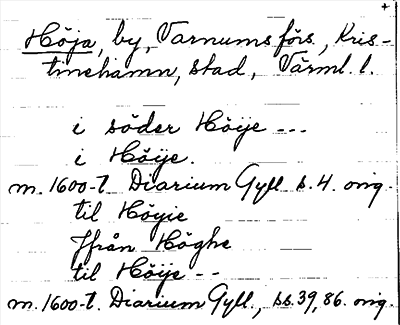 +
Höja, by, Varnums förs., Kris-
tinehamn, stad, Värml. l.
i söder Höije ---
i Höije.
m. 1600-t. Diarium Gyll s. 4. orig.
til Höyie
Ffrån Höghe
til Höije --
m. 1600-t. Diarium Gyll., ss. 39, 86. orig.